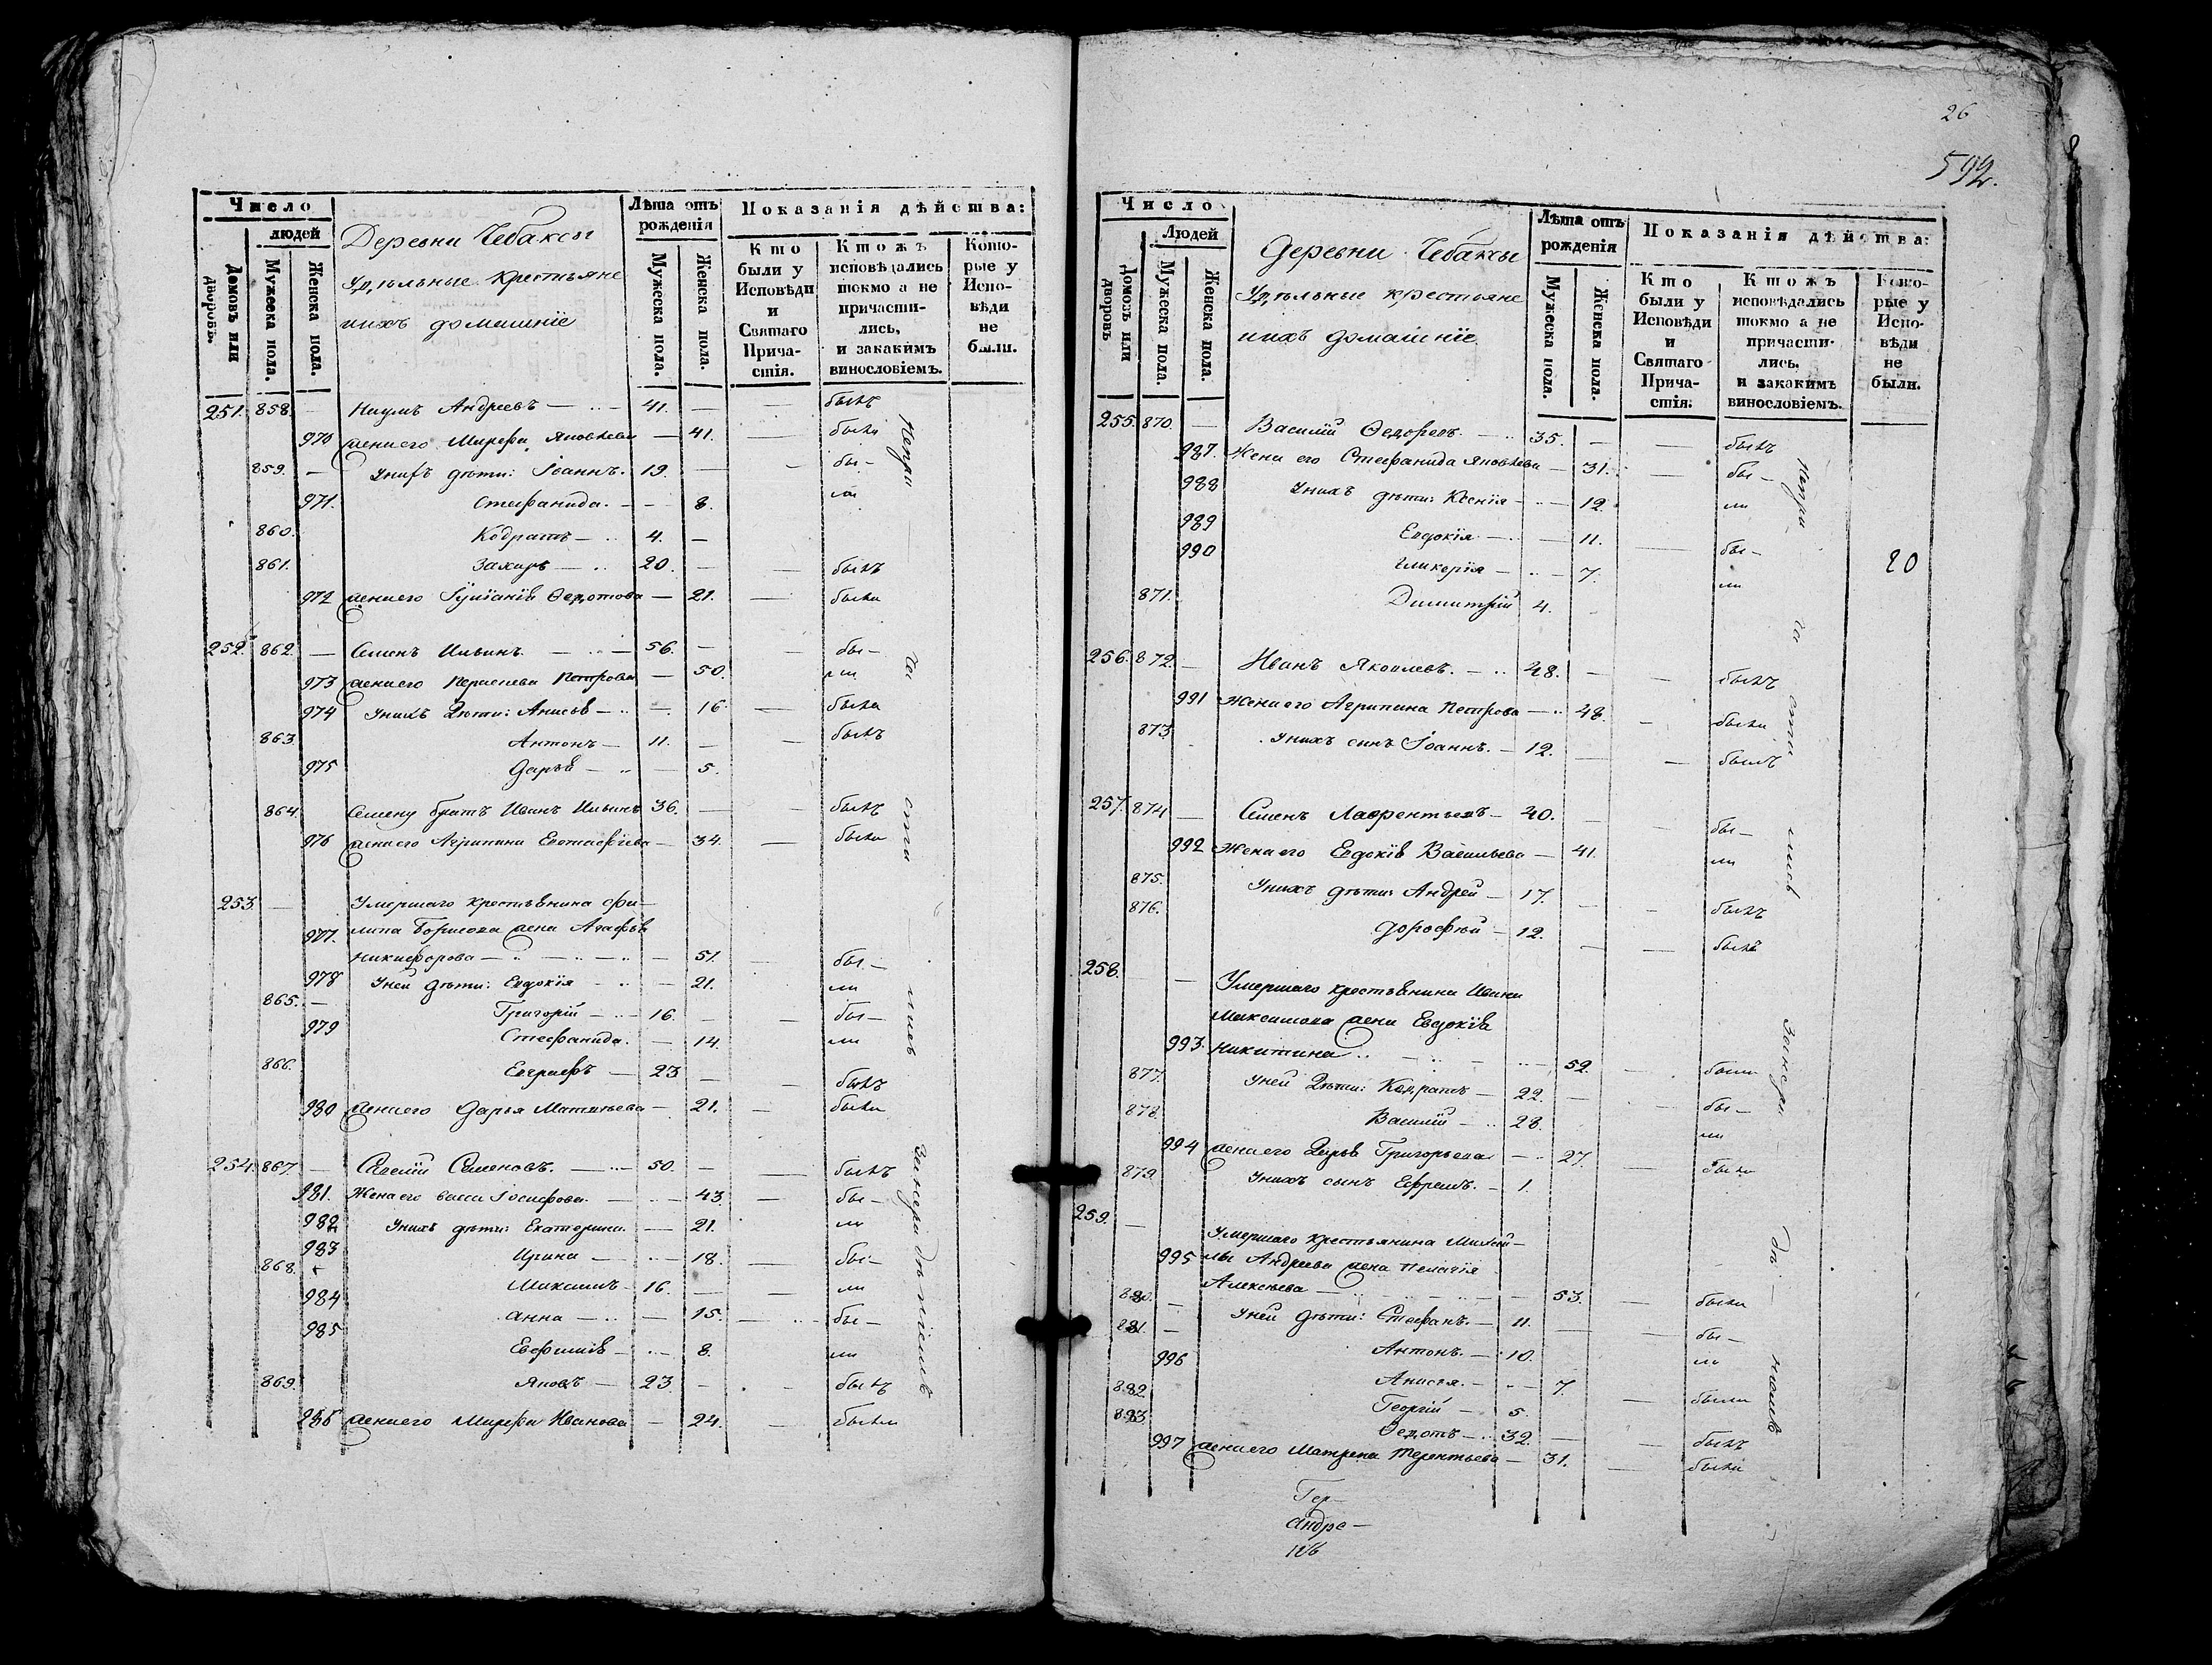 Число
людей
Домовъ или дворовъ.
Мужеска пола.
Женска пола.
Деревни Чебаксы
Удѣльные крестьяне
иихъ домашніе
Лѣта отъ рожденія
Мужеска пола.
Женска пола.
Показанія дѣйства:
Кто были у Исповѣди и Святаго Прича-стія.
Ктожъ исповѣдались токмо а не причасти-лись, и закакимъ винословіемъ.
Кото-рые у Испо-вѣди не были.
251. 858. — Наумъ Андреевъ — 41. — — былъ
970 жена его Марфа Яковлева — 41. — была
859. — Унихъ дѣти: Іоаннъ. 19. — — бы-
971. Стефанида. — 8. ли
860. Кодратъ — 4. —
861. Захаръ — 20. — — былъ
972 жена его Іуліанія Ѳедотова — 21. — была
252. 862. — Семенъ Ильинъ. — 56. — — бы-
973 жена его Петрова — 50. ли
974 Унихъ дѣти: Анисья — 16. — была
863. Антонъ — 11. — — былъ
975 Дарья — 5.
864. Семену братъ Иванъ Ильинъ 36. — — былъ
976 жена его Агрипина Евстафіева — 34. — была
253. — Умершаго крестьянина Фи-
977. липа Борисова жена Агафья
Никифорова — 51. бы-
978 Уней дѣти: Евдокія — 21. ли
865. — Григорій — 16. — — бы-
979 Стефанида. — 14. ли
866. Евграфъ — 23 — — былъ
980 жена его Дарья Матвѣева — 21. — была
254. 867. — Савелій Семеновъ. — 50. — — былъ
981. Жена его Васса Іосифова. — 43. — бы-
982 Унихъ дѣти: Екатерина. — 21. ли
983 Ирина — 18. — бы-
868. Максимъ — 16. — — ли
984 Анна — 15. — бы-
985 Евфимія — 8. ли
869. Яковъ — 23. — — былъ
986 жена его Марфа Иванова — 24. — была
Непри — ча — сти — лись
занеради — ніемъ
26
592.
Число
Людей
Домовъ или дворовъ
Мужеска пола.
Женска пола.
Деревни Чебаксы
Удѣльные крестьяне
иихъ домашніе
Лѣта отъ рожденія
Мужеска пола.
Женска пола.
Показанія дѣйства:
Кто были у Исповѣди и Святаго Прича-стія.
Ктожъ исповѣдались токмо а не причасти-лись, и закакимъ винословіемъ.
Кото-рые у Испо-вѣди не были.
255. 870. — Василій Ѳедоровъ. — 35. — — былъ
987. Жена его Стефанида Яковлева — 31. — бы-
988 Унихъ дѣти: Ксенія — 12. ли
989 Евдокія — 11. — бы-
990 Гликерія — 7. ли
20
871. Димитрій 4.
256. 872. — Иванъ Яковлевъ. — 48. — — былъ
991 Жена его Агрипина Петрова — 48. — была
873. Унихъ сынъ Іоаннъ. — 12. — — былъ
257. 874 — Семенъ Лаврентьевъ — 40. — — бы-
992 Жена его Евдокія Васильева — 41. ли
875. Унихъ дѣти: Андрей — 17. — — былъ
876. Дорофѣй — 12. — — былъ
258. — Умершаго крестьянина Ивана
Максимова жена Евдокія
993. Никитина — 52. — была
877. Уней дѣти: Кодратъ — 22. — — бы-
878. Василій — 28. ли
994 жена его Дарья Григорьева — 27. — была
879. Унихъ сынъ Ефремъ. — 1.
259. — Умершаго крестьянина Михай-
995 лы Андреева жена Пелагія
Алексѣева — 53. — была
880. — Уней дѣти: Стефанъ. — 11. — — бы-
881. — Антонъ. — 10. ли
996 Анисья. — 7. — были
882. Георгій — 5.
883. Ѳедотъ — 32. — — былъ
997 жена его Матрена Терентьева — 31. — была
Непри — ча — сти — лись
Занера — ді — ніемъ
Гер-
андре —